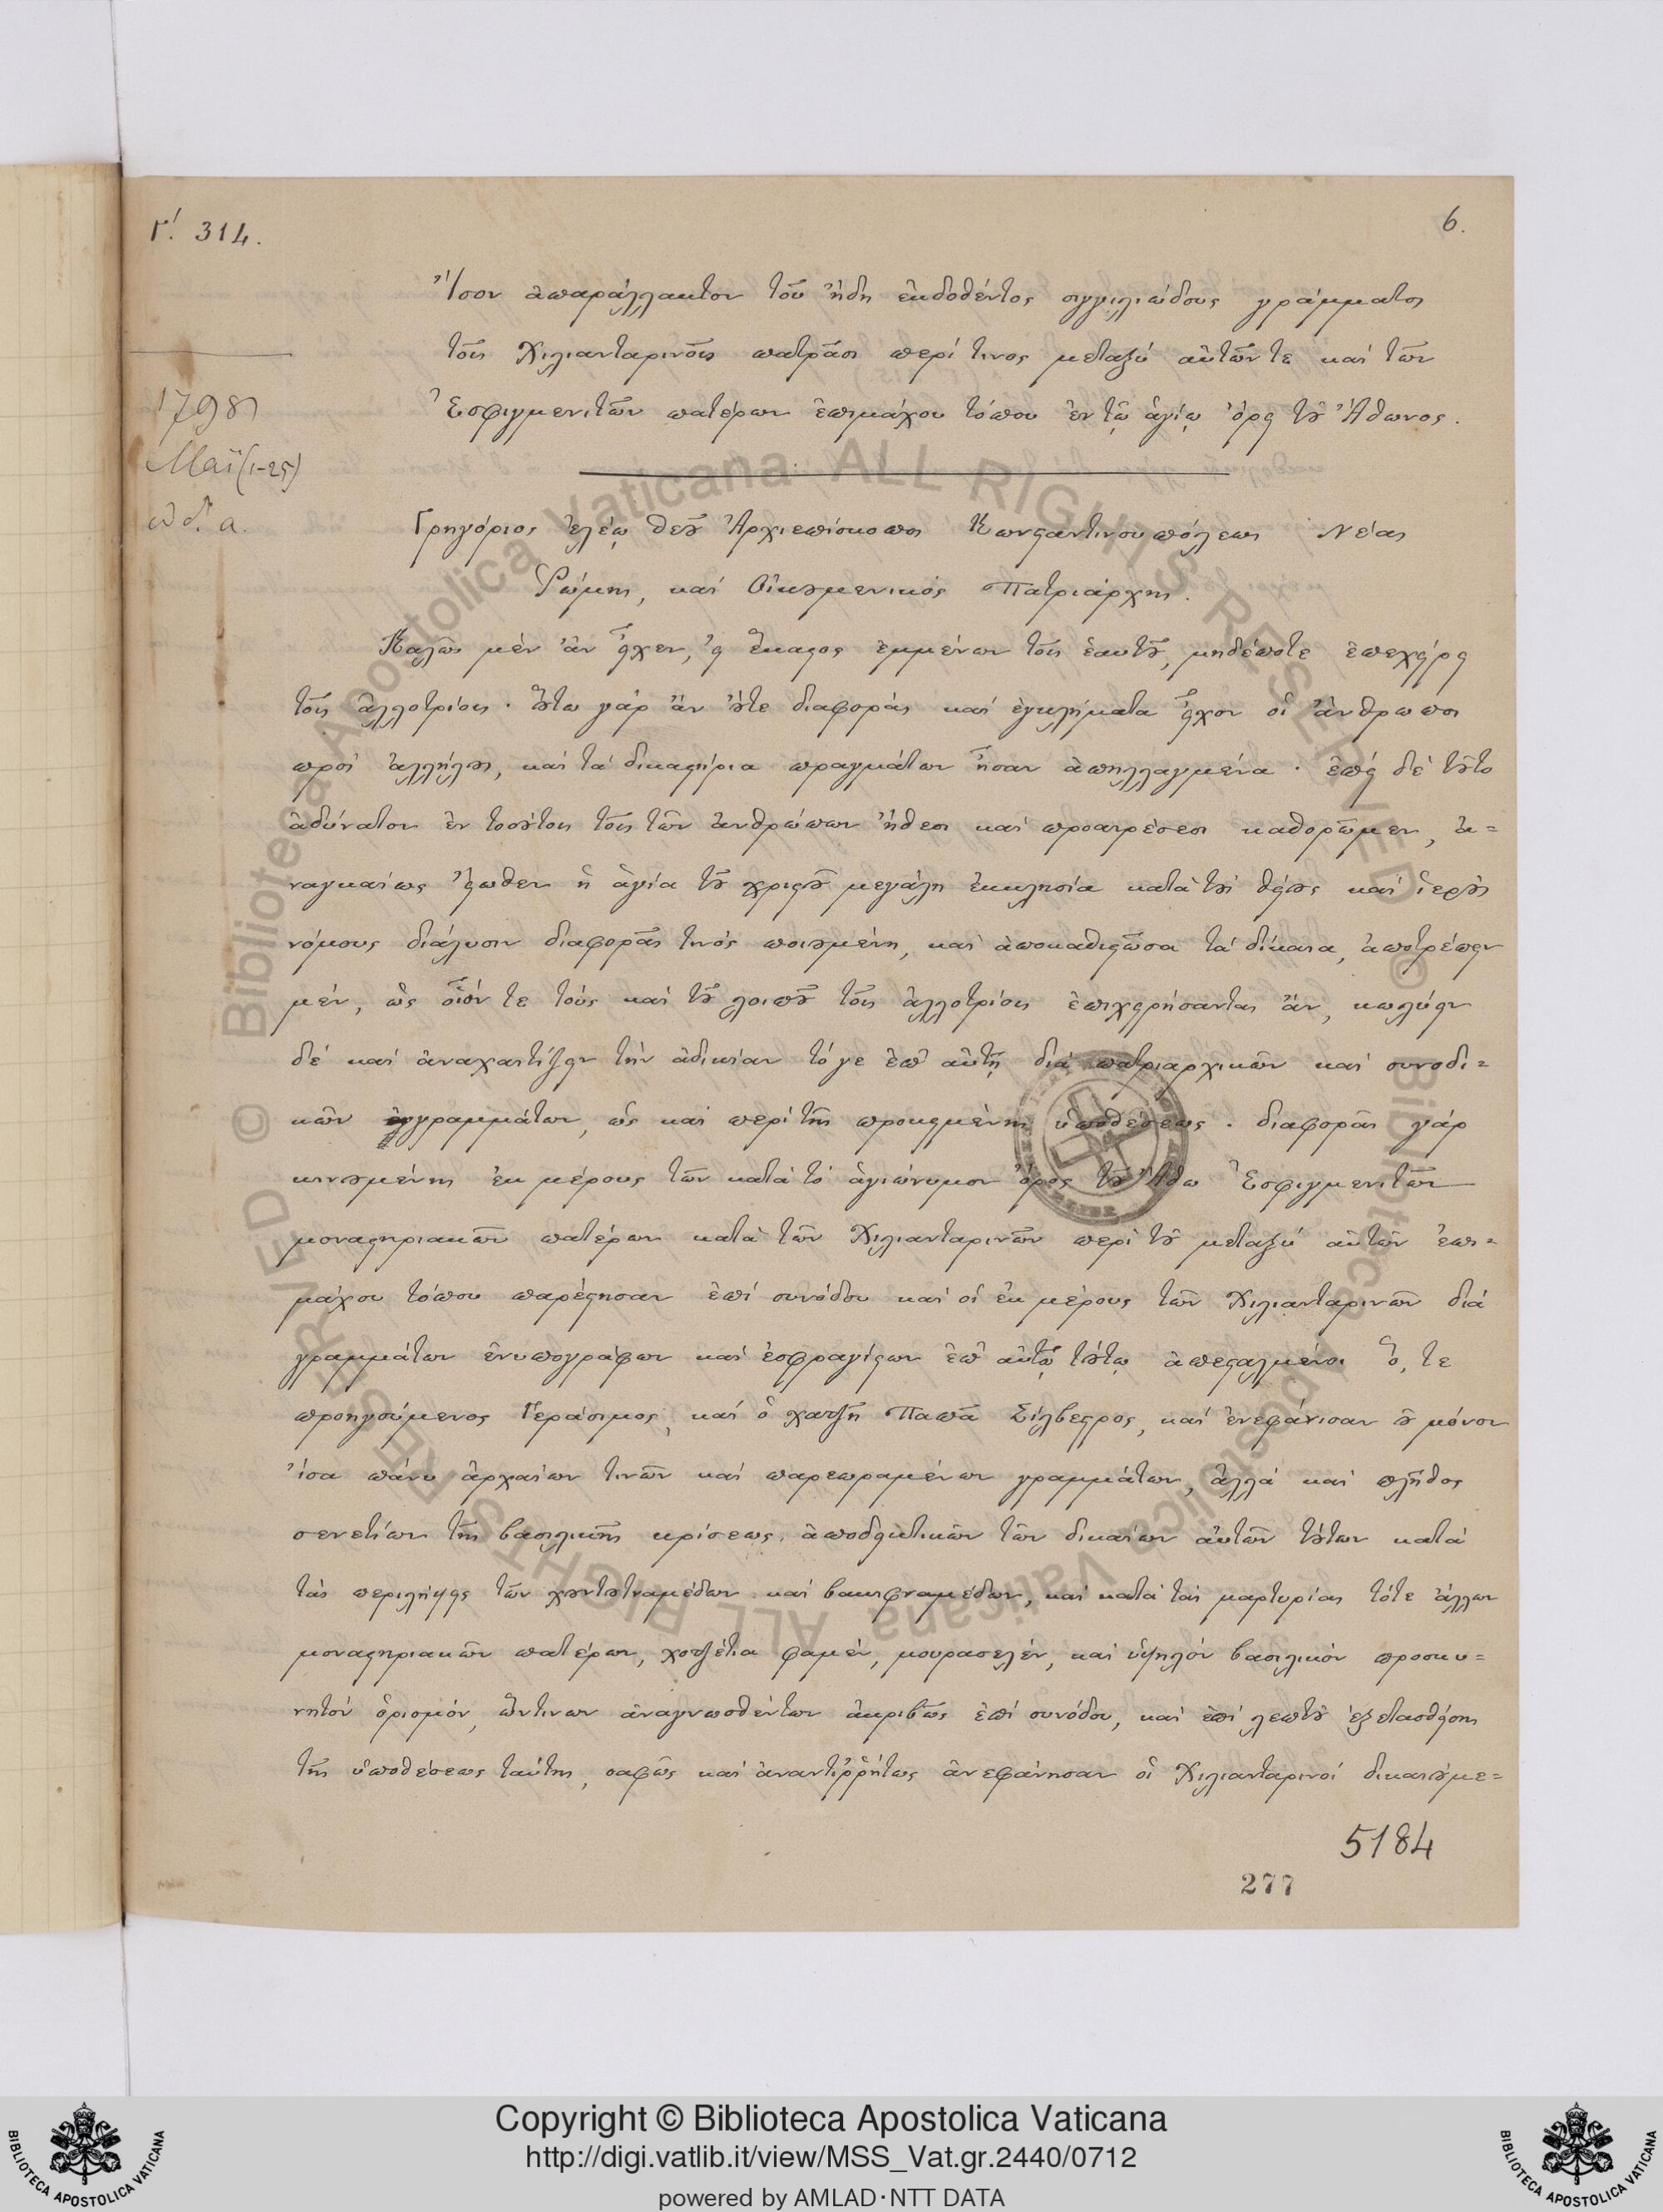 Γ΄. 314.
6.
Ἴσον ἀπαράλλακτον τοῦ ἤδη ἐκδοθέντος σιγγιλιώδους γράμματος
τοῖς Χιλιανταρινοῖς πατρᾶσι περί τινος μεταξύ αὐτῶν τε καί τῶν
Ἐσφιγμενιτῶν πατέρων ἐπιμάχου τόπου ἐν τῷ ἁγίῳ ὄρει τοῦ Ἄθωνος.
1798
Μαϊ (1-25)
ἰνδ. α.
Γρηγόριος ἐλέῳ θεοῦ Ἀρχιεπίσκοπος Κωνσταντινουπόλεως Νέας
Ῥώμης, καί Οἰκουμενικός Πατριάρχης.
Καλῶς μέν ἄν εἶχεν, εἰ ἕκαστος ἐμμένων τοῖς ἑαυτοῦ, μηδέποτε ἐπεχείρει
τοῖς ἀλλοτρίοις· οὕτω γάρ ἄν οὔτε διαφοράς καί ἐγκλήματα εἶχον οἱ ἄνθρωποι
πρός ἀλλήλους, καί τά δικαστήρια πραγμάτων ἦσαν ἀπηλλαγμένα· ἐπεί δέ τοῦτο
ἀδύνατον ἐν τοσούτοις τοῖς τῶν ἀνθρώπων ἤθεσι καί προαιρέσεσι καθορῶμεν, ἀ=
ναγκαίως εἴωθεν ἡ ἁγία τοῦ χριστοῦ μεγάλη ἐκκλησία κατά τούς θείους καί ἱερούς
νόμους διάλυσιν διαφορᾶς τινός ποιουμένη, καί ἀποκαθιστῶσα τά δίκαια, ἀποτρέπειν
μέν, ὡς οἷόν τε τούς καί τοῦ λοιποῦ τοῖς ἀλλοτρίοις ἐπιχειρήσαντας ἄν, κωλύειν
δέ καί ἀναχαιτίζειν τήν ἀδικίαν τό γε ἐπ' αὐτῇ διά πατριαρχικῶν καί συνοδι=
κῶν γραμμάτων, ὡς καί περί τῆς προκειμένης ὑποθέσεως. διαφορᾶς γάρ
κινουμένης ἐκ μέρους τῶν κατά τό ἁγιώνυμον ὄρος τοῦ Ἄθω Ἐσφιγμενιτῶν
μοναστηριακῶν πατέρων κατά τῶν Χιλιανταρινῶν περί τοῦ μεταξύ αὐτῶν ἐπι=
μάχου τόπου παρέστησαν ἐπί συνόδου καί οἱ ἐκ μέρους τῶν Χιλιανταρινῶν διά
γραμμάτων ἐνυπογράφων καί ἐσφραγίστων ἐπ' αὐτῷ τούτῳ ἀπεσταλμένοι ὅ, τε
προηγούμενος Γεράσιμος, καί ὁ χατζῆ Παπᾶ Σίλβεστρος, καί ἐνεφάνισαν οὐ μόνον
ἴσα πάνυ ἀρχαίων τινῶν καί παρεωραμένων γραμμάτων, ἀλλά καί πλῆθος
σενετίων τῆς βασιλικῆς κρίσεως, ἀποδεικτικῶν τῶν δικαίων αὐτῶν τούτων κατά
τάς περιλήψεις τῶν χουντουτναμέδων καί βακουφναμέδων, καί κατά τάς μαρτυρίας τότε ἄλλων
μοναστηριακῶν πατέρων, χοτζέτια φαμέν, μουρασελέν, καί ὑψηλόν βασιλικόν προσκυ=
νητόν ὁρισμόν, ὧντινων ἀναγνωσθέντων ἀκριβῶς ἐπί συνόδου, καί ἐπί λεπτοῦ ἐξετασθείσης
τῆς ὑποθέσεως ταύτης, σαφῶς καί ἀναντιῤῥήτως ἀνεφάνησαν οἱ Χιλιανταρινοί δικαιούμε=
5184
277
© Biblioteca Apostolica Vaticana ALL RIGHTS RESERVED
© Biblioteca Apostolica Vaticana ALL RIGHTS RESERVED
Copyright © Biblioteca Apostolica Vaticana
http://digi.vatlib.it/view/MSS_Vat.gr.2440/0712
powered by AMLAD·NTT DATA
BIBLIOTECA APOSTOLICA VATICANA
BIBLIOTECA APOSTOLICA VATICANA